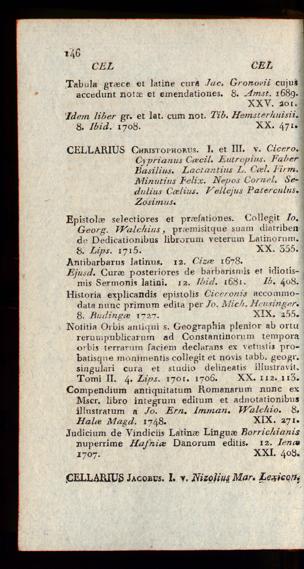 146
CEL CEL
Tabula græce et latine cura Jac. Gronovii cujus
accedunt notæ et emendationes. 8. Amst. 1689.
XXV. 201.
Idem liber gr. et lat. cum not. Tib. Hemsterhuisii.
8. Ibid. 1708. XX. 471.
CELLARIUS CHRISTOPHORUS. I. et III. v. Cicero.
Cyprianus Cæcil. Eutropius. Faber
Basilius. Lactantius L. Cœl. Firm.
Minutius Felix. Nepos Cornel. Se-
dulius Cælius. Vellejus Paterculus.
Zosimus.
Epistolæ selectiores et præfationes. Collegit Io.
Georg. Walchius, præmisitque suam diatriben
de Dedicationibus librorum veterum Latinorum.
8. Lips. 1715. XX. 355.
Antibarbarus latinus. 12. Cizæ 1678.
Ejusd. Curæ posteriores de barbarismis et idiotis-
mis Sermonis latini. 12. Ibid. 1681. Ib. 408.
Historia explicandis epistolis Ciceronis accommo-
data nunc primum edita per Jo. Mich. Heusinger.
8. Budingæ 1727. XIX. 255.
Notitia Orbis antiqui s. Geographia plenior ab ortu
rerumpublicarum ad Constantinorum tempora
orbis terrarum faciem declarans ex vetustis pro-
batisque monimentis collegit et novis tabb. geogr.
singulari cura et studio delineatis illustravit.
Tomi II. 4. Lips. 1701. 1706. XX. 112. 113.
Compendium antiquitatum Romanarum nunc ex
Mscr. libro integrum editum et adnotationibus
illustratum a Jo. Ern. Imman. Walchio. 8.
Halæ Magd. 1748. XIX. 271.
Judicium de Vindiciis Latinæ Linguæ Borrichianis
nuperrime Hafniæ Danorum editis. 12. Ienæ
1707. XXI. 408.
CELLARIUS JACOBUS. I. v. Nizolius Mar. Lexicon.